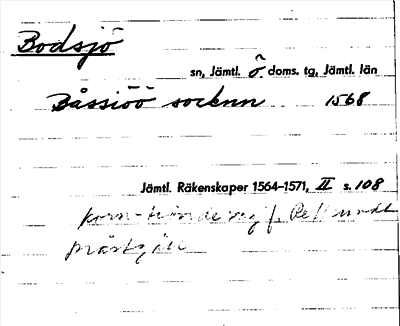 Bodsjö
sn, Jämtl. ö. doms. tg, Jämtl. län
Båssiöö socknn 1568
Jämtl. Räkenskaper 1564–1571, II s. 108
korn-tiende